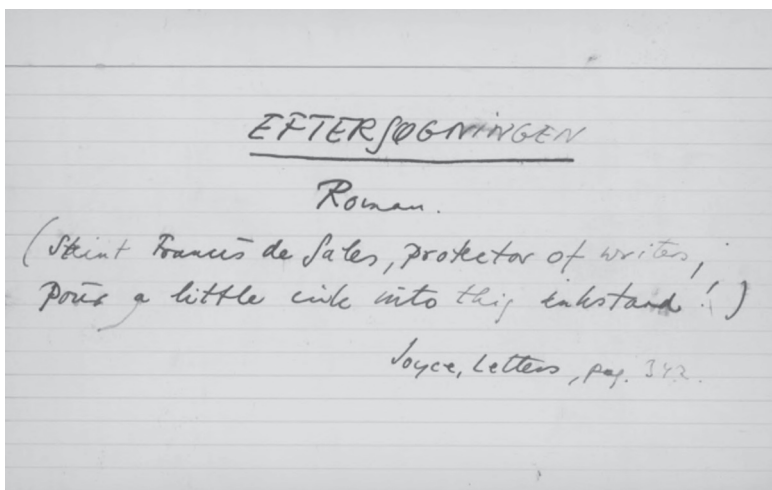 EFTERSØGNINGEN
Roman.
(Saint Francis de Sales, protector of writers,
pour a little ink into this inkstand!)
Joyce, Letters, pag. 342.